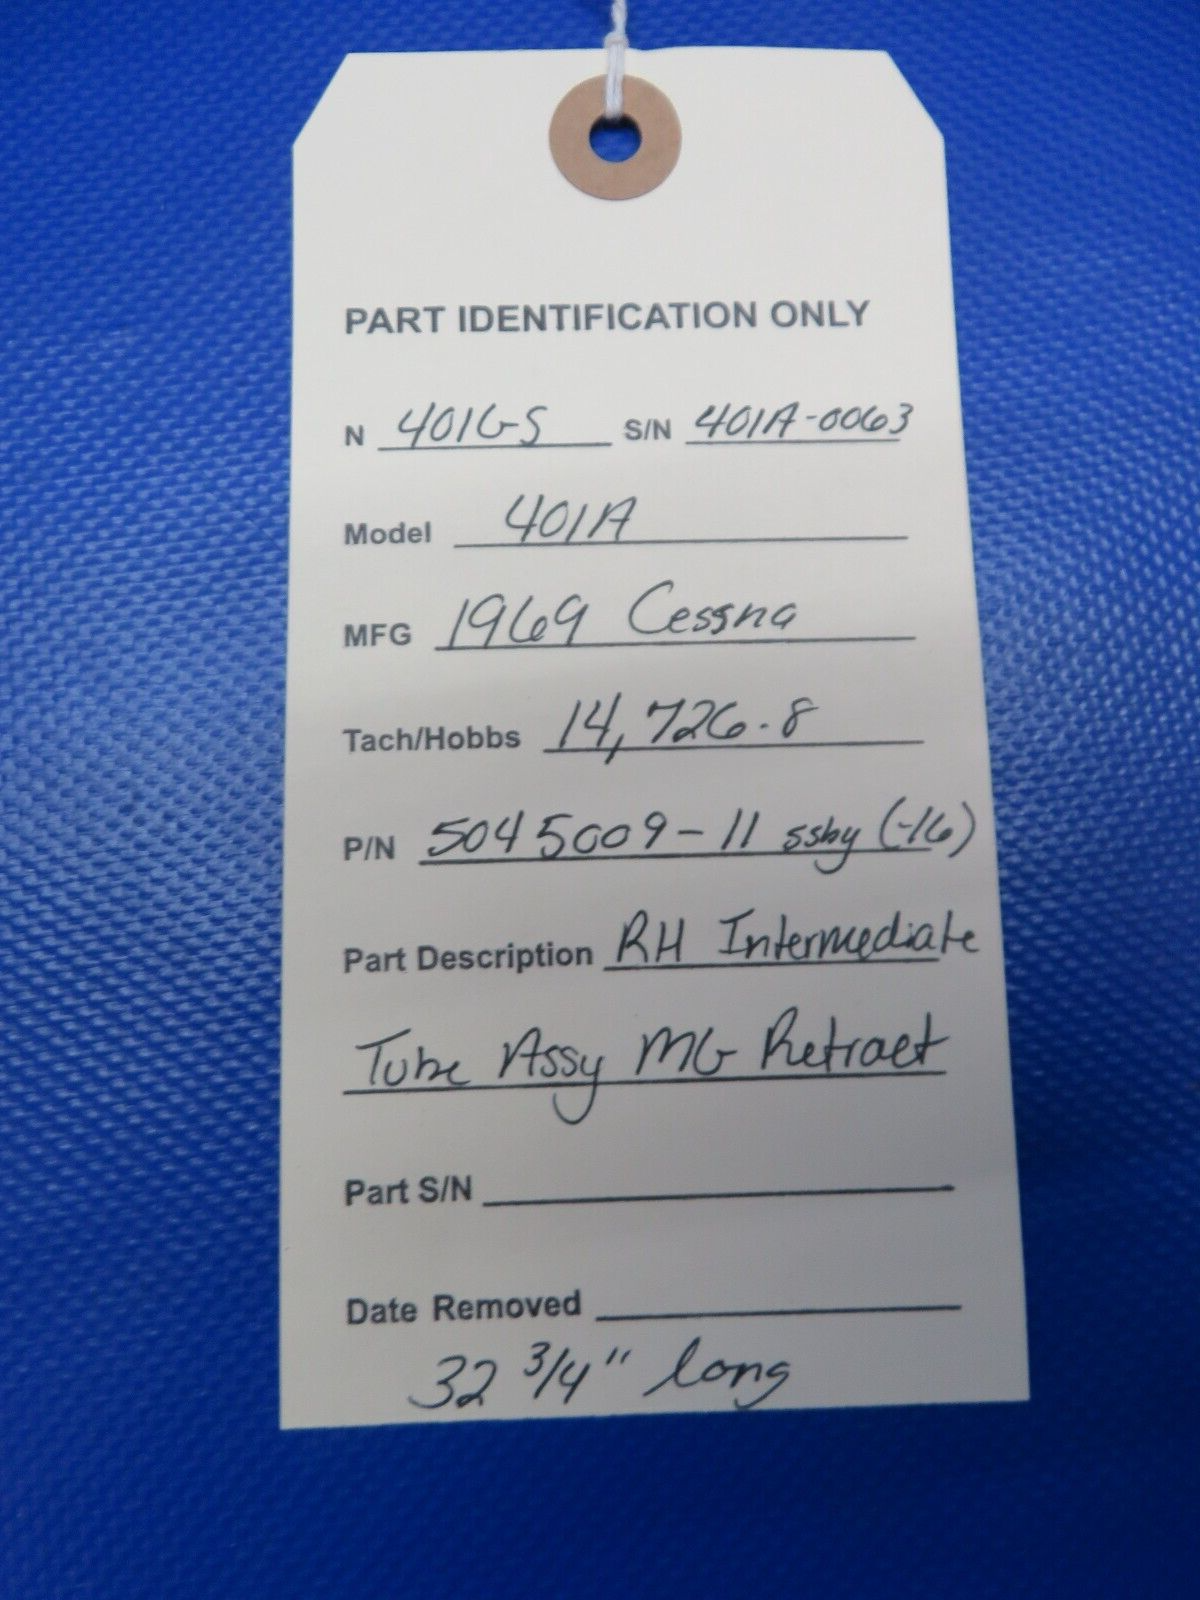 PART IDENTIFICATION ONLY
N 401GS S/N 401A-0063
Model 401A
MFG 1969 Cessna
Tach/Hobbs 14,726.8
P/N 5045009-11 ssby (-16)
Part Description RH Intermediate
Tube Assy MG Retract
Part S/N
Date Removed
32 3/4" long